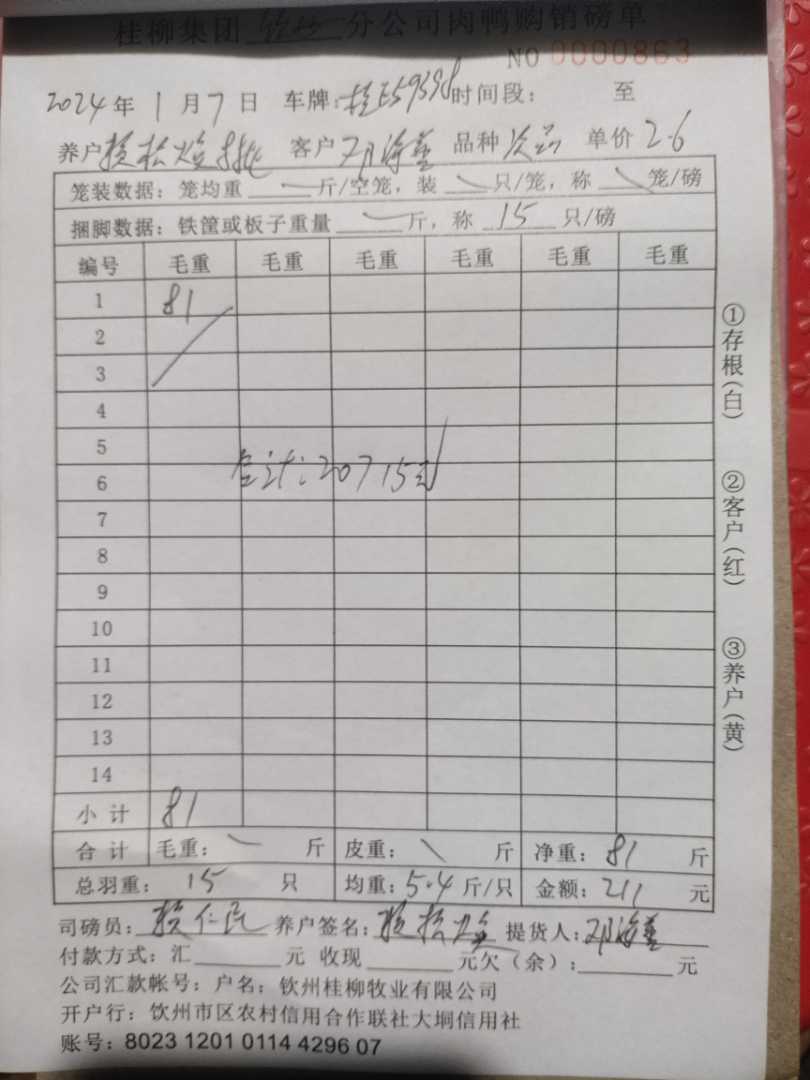 桂柳集团 钦州 分公司肉鸭购销磅单
NO 0000863
2024年1月7日 车牌: 时间段: 至
养户 客户 邓海 品种 次品 单价 2.6
笼装数据: 笼均重 斤/空笼, 装 只/笼, 称 笼/磅
捆脚数据: 铁筐或板子重量 斤, 称 15 只/磅
编号 毛重 毛重 毛重 毛重 毛重 毛重
1 81
2
3
4
5
6 合计: 20715元
7
8
9
10
11
12
13
14
小计 81
合计 毛重: 斤 皮重: 斤 净重: 81 斤
总羽重: 15 只 均重: 5.4 斤/只 金额: 211 元
司磅员: 仁民 养户签名: 提货人: 邓海
付款方式: 汇 元 收现 元欠(余): 元
公司汇款帐号: 户名: 钦州桂柳牧业有限公司
开户行: 钦州市区农村信用合作联社大垌信用社
账号: 8023 1201 0114 4296 07
①存根(白)
②客户(红)
③养户(黄)